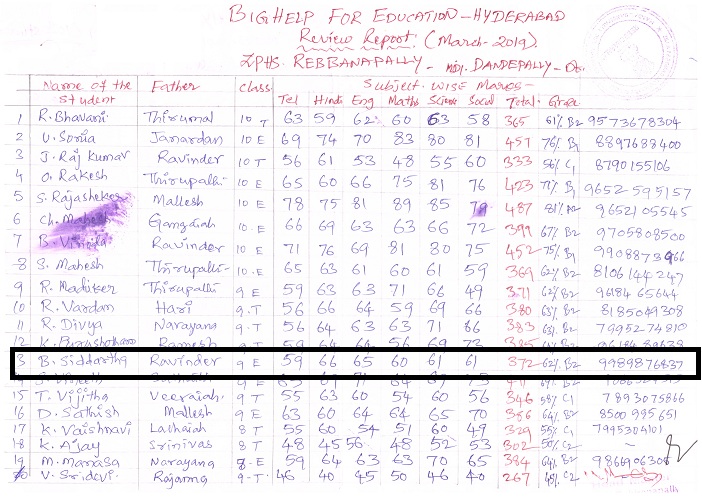 BIGHELP FOR EDUCATION - HYDERABAD
Review Report (March-2019)
ZPHS. REBBANAPALLY - DANDEPALLY -
Name of the Student Father class Subject wise Marks -
Tel Hindi Eng Maths Science Social Total Grade
1 R. Bhavani Thirumal 10 T 63 59 62 60 63 58 365 61% B2 9573678304
2 V. Sonia Janardan 10 E 69 74 70 83 80 81 457 76% B1 8897688400
3 J. Raj Kumar Ravinder 10 T 56 61 53 48 55 60 333 56% C1 8790155106
4 O. Rakesh Thirupathi 10 E 65 60 66 75 81 76 423 71% B1 9652595157
5 S. Rajasheker Mallesh 10 E 78 75 81 89 85 79 487 81% A2 9652105545
6 Ch. Mahesh Gangaiah 10 E 66 69 63 63 66 72 399 67% B2 9705808500
7 B. Ravinder 10 E 71 76 69 81 80 75 452 75% B1 9908873966
8 S. Mahesh Thirupathi 10 E 65 63 61 60 61 59 369 62% B2 8106144247
9 R. Thirupathi 9 E 59 63 63 71 66 49 371 62% B2 9618465644
10 R. Vardan Hari 9 T 56 66 64 59 69 66 380 63% B2 8185049308
11 R. Divya Narayana 9 T 56 64 63 63 71 86 383 63% B2 7995274810
12 K. Purushotham Ramesh 9 T 59 64 64 56 69 73 385
13 B. Siddartha Ravinder 9 E 59 66 65 60 61 61 372 62% B2 9989876837
15 T. Vijitha Veeraiah 9 T 55 63 60 54 60 56 346 58% C1 7893075866
16 D. Sathish Mallesh 9 E 63 60 64 64 65 70 386 64% B2 8500995651
17 K. Vaishnavi Lachaiah 8 T 55 60 54 51 60 49 329 55% C1 7995304101
18 K. Ajay Srinivas 8 T 48 45 56 48 52 53 302 50% C2 -
19 M. Manasa Narayana 8 E 59 64 63 63 70 65 384 64% B2 9866906305
20 V. Sridevi Rajanna 9 T 46 40 45 50 46 40 267 45% C2